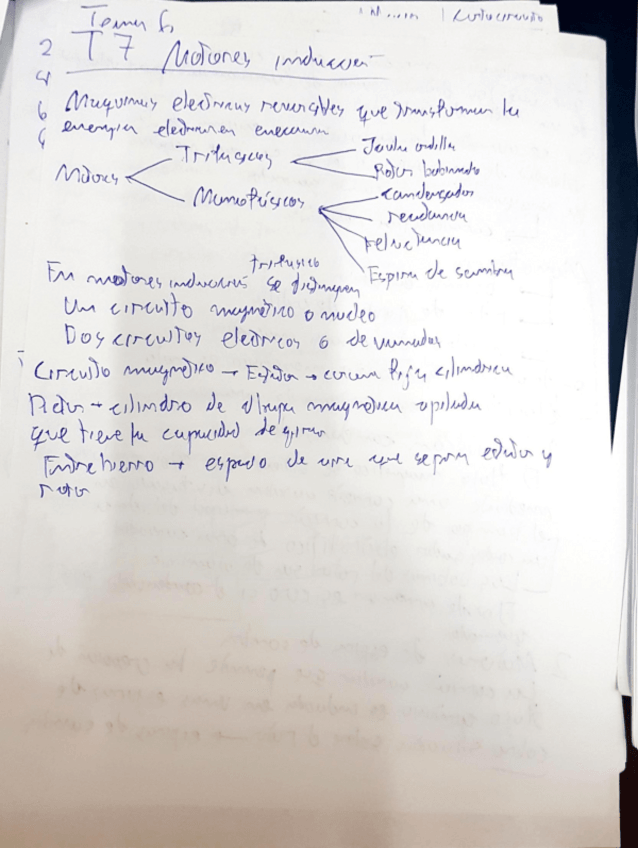 Tema 6
T7 Motores inducción
2
4
6
6
Maquinas electricas reversibles que transforman la
energia electrica en mecanica
Motores
Trifasicos
Jaula ardilla
Rotor bobinado
Monofásicos
Condensador
reluctancia
Espira de sombra
En motores inducción trifasico se distinguen
Un circuito magnético o nucleo
Dos circuitos electricos o devanados
Circuito magnético → Estator → corona fija cilindrica
Rotor → cilindro de chapa magnetica apilada
que tiene la capacidad de girar
Entrehierro → espacio de aire que separa estator y
rotor